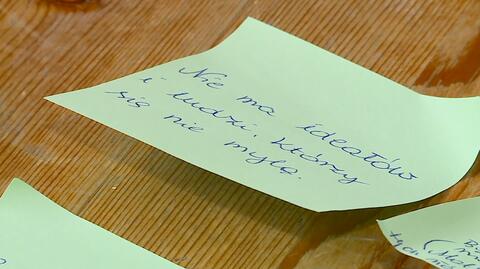 Nie ma ideałów
i ludzi, którzy
się nie mylą.